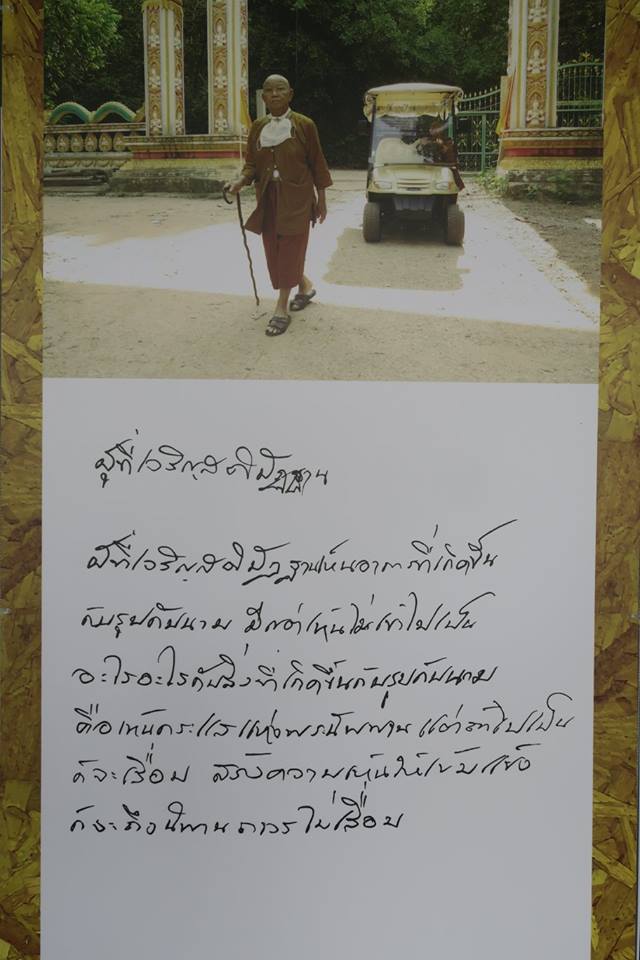 ผู้ที่เจริญสติปัฏฐาน
ผู้ที่เจริญสติปัฏฐานเห็นอาการที่เกิดขึ้น
กับรูปกับนาม มีแต่เห็นไม่เข้าไปเป็น
อะไรอะไรกับสิ่งที่เกิดขึ้นกับรูปกับนาม
คือเห็นกระแสแห่งพระนิพพาน แต่ถ้าไปเป็น
ก็จะเสื่อม สร้างความเห็นให้เข้มแข็ง
ก็จะถึงนิพพานถาวรไม่เสื่อม